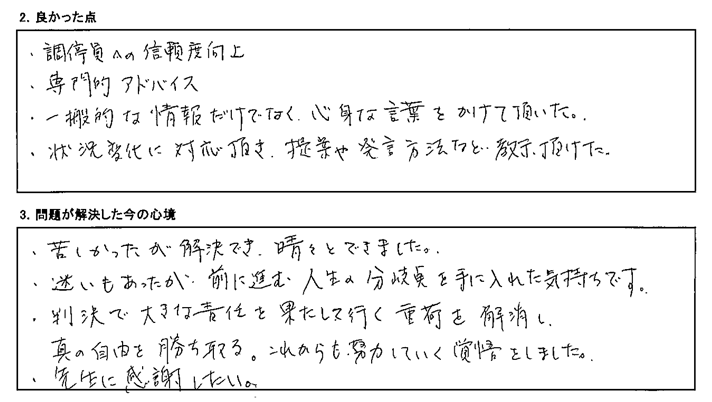 2. 良かった点
・調停員への信頼度向上
・専門的アドバイス
・一般的な情報だけでなく、心身な言葉をかけて頂いた。
・状況変化に対応頂き、提案や発言方法など教示頂けた。
3. 問題が解決した今の心境
・苦しかったが解決でき、晴々とできました。
・迷いもあったが、前に進む人生の分岐点を手に入れた気持ちです。
・判決で大きな責任を果たして行く重荷を解消し、
真の自由を勝ち取る。これからも努力していく覚悟をしました。
・先生に感謝したい。